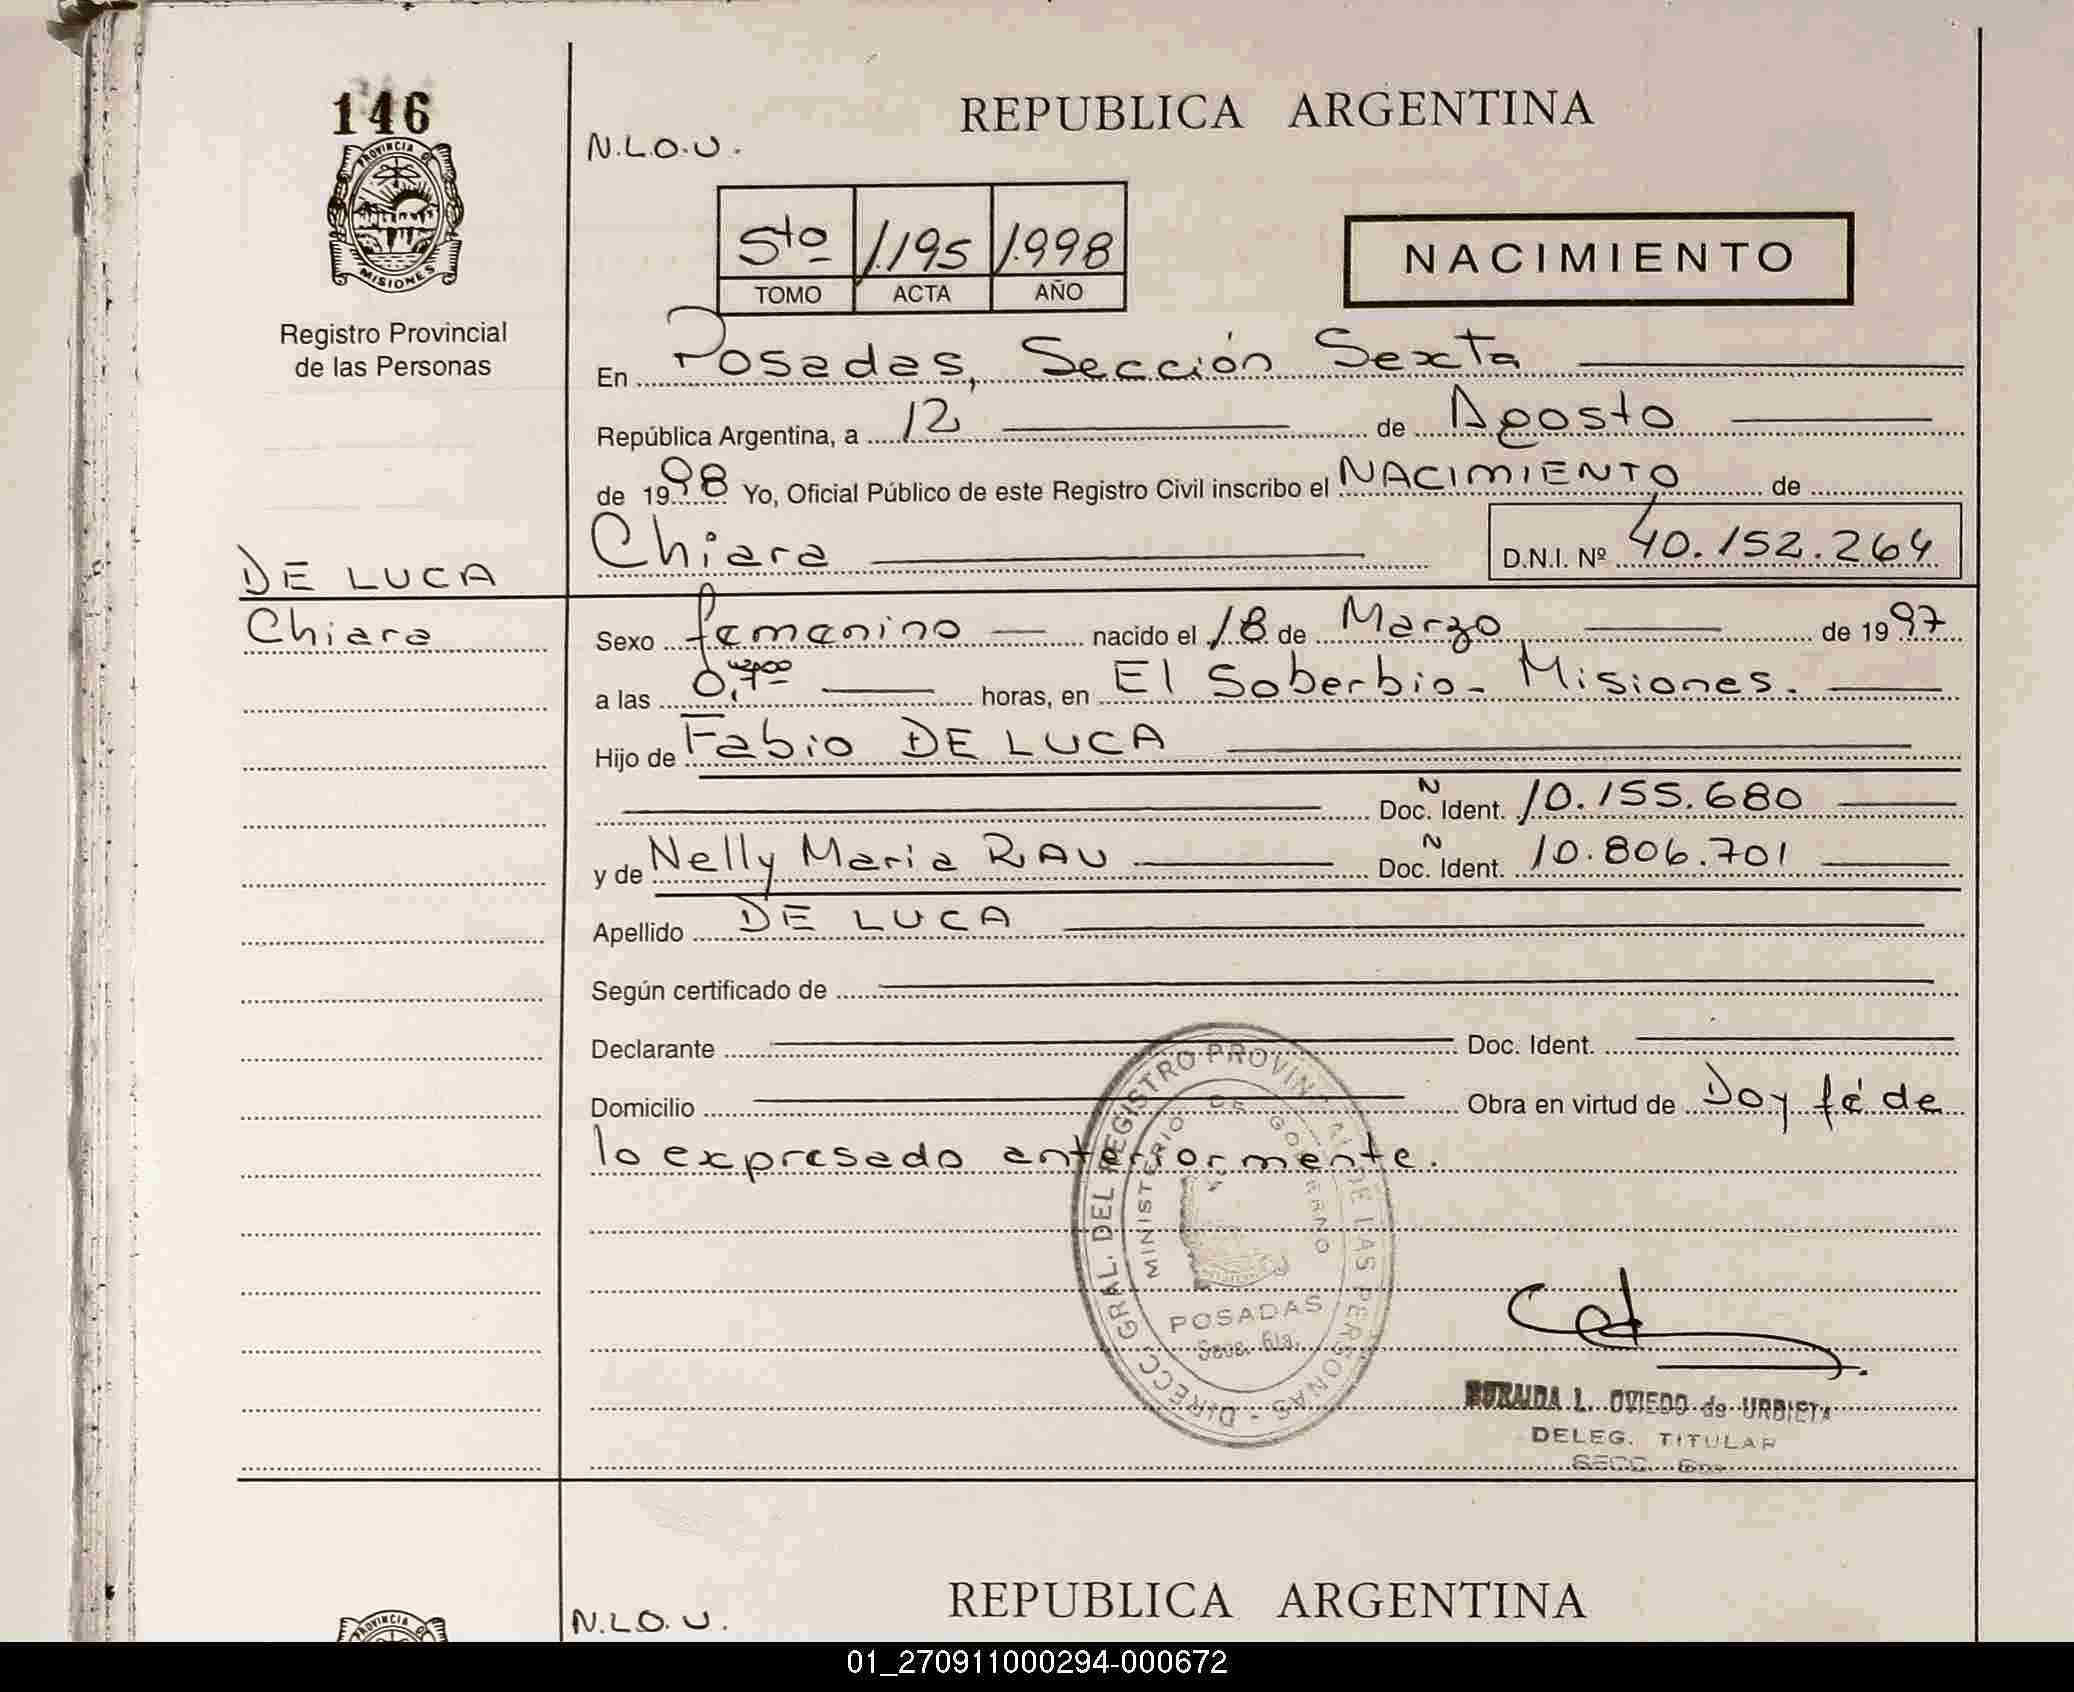 146
PROVINCIA DE
MISIONES
Registro Provincial
de las Personas
REPUBLICA ARGENTINA
N.L.O.U.
5to 1.195 1.998
TOMO ACTA AÑO
NACIMIENTO
En Posadas, Sección Sexta
República Argentina, a 12 de Agosto
de 1998 Yo, Oficial Público de este Registro Civil inscribo el NACIMIENTO de
Chiara D.N.I. Nº 40.152.264
DE LUCA
Chiara
Sexo femenino nacido el 18 de Marzo de 1997
a las 0,700 horas, en El Soberbio - Misiones.
Hijo de Fabio DE LUCA
Doc. N Ident. 10.155.680
y de Nelly Maria RAU Doc. N Ident. 10.806.701
Apellido DE LUCA
Según certificado de
Declarante Doc. Ident.
Domicilio Obra en virtud de Doy fé de
lo expresado anteriormente.
DIRECC. GRAL. DEL REGISTRO PROVINCIAL DE LAS PERSONAS
MINISTERIO DE GOBIERNO
POSADAS
Secc. 6ta.
L. OVIEDO de URBIETA
DELEG. TITULAR
SECC.
REPUBLICA ARGENTINA
N.L.O.U.
PROVINCIA
01_270911000294-000672